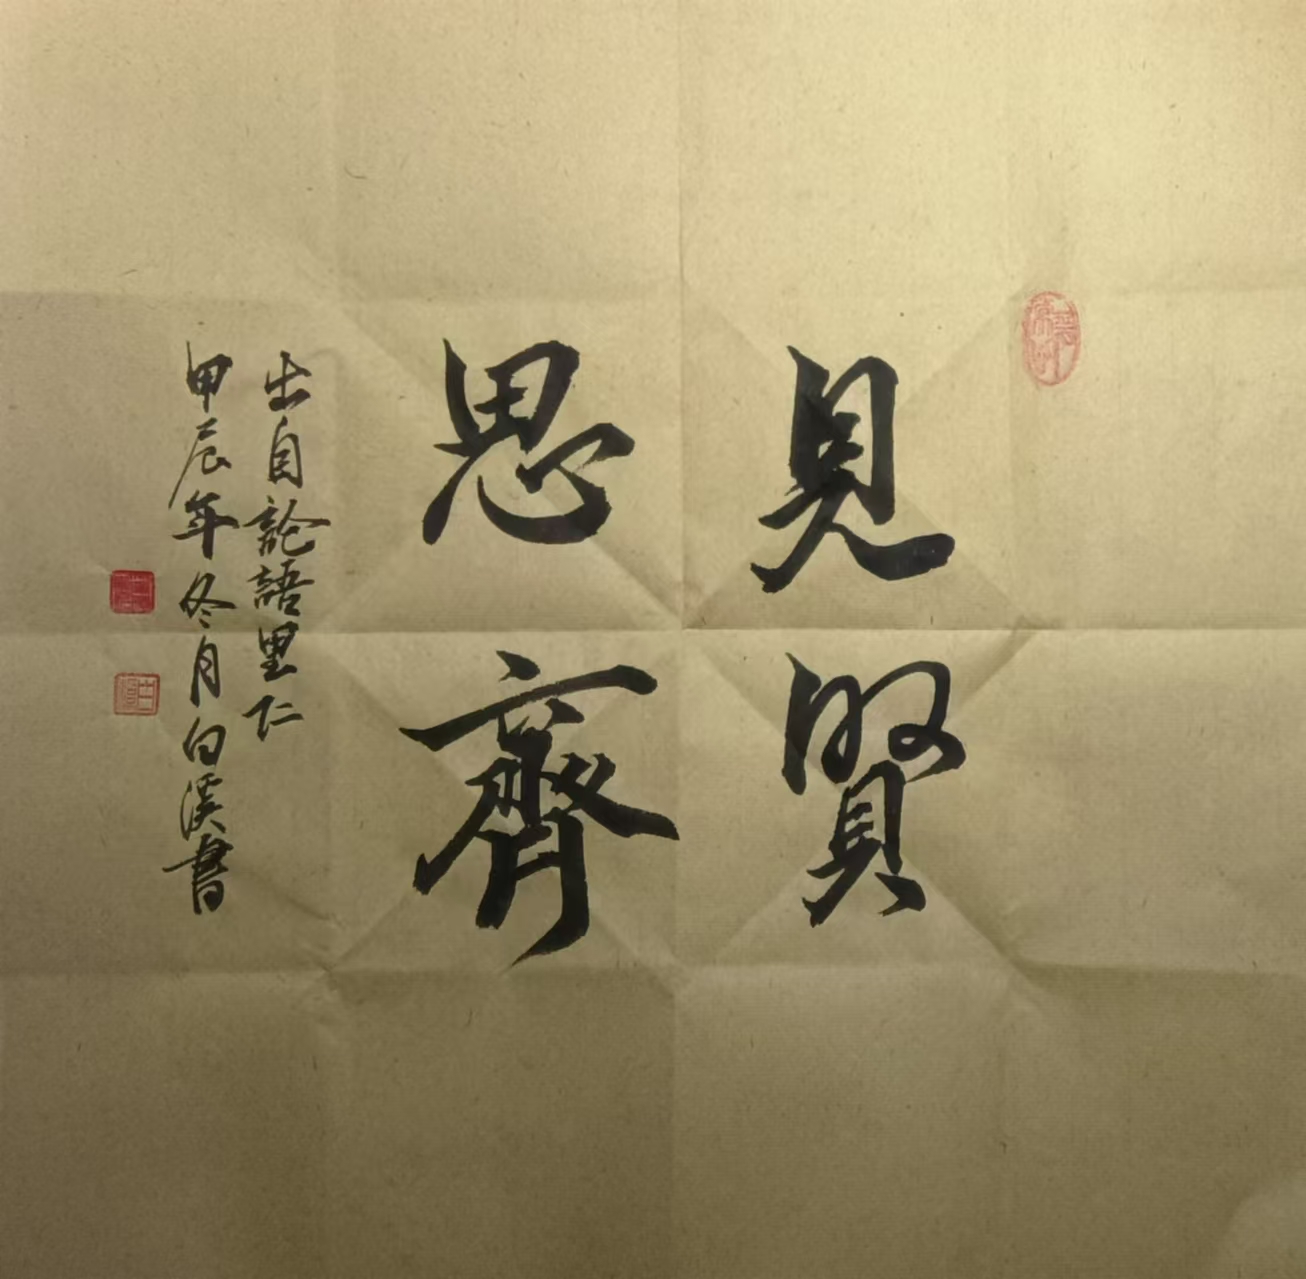 見賢
思齊
出自論語里仁
甲辰年冬月白溪書